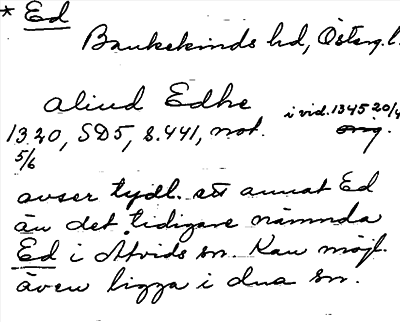 * Ed
Bankekinds hd, Österg. l.
aliud Edhe i vid. 1345 20/4
1320, SD5, s. 441, not. orig.
5/6
avser tydl. ett annat Ed
än det tidigare nämnda
Ed i Åtvids sn. Kan möjl.
även ligga i dna sn.